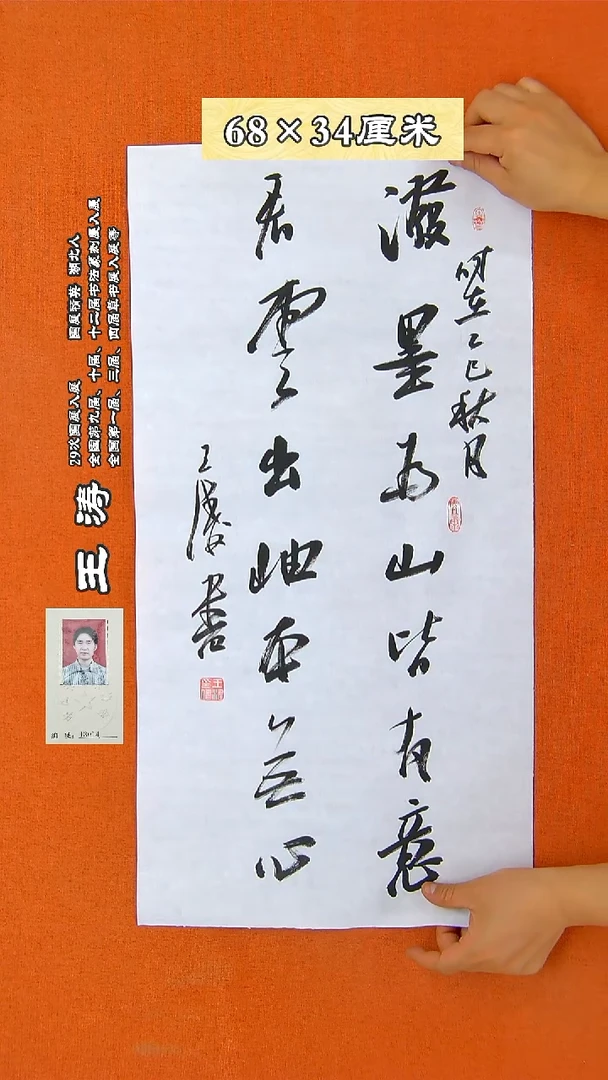 68×34厘米
時在乙巳秋月
潑墨为山皆有意
看雲出岫本無心
王濤書
王涛
29次国展入展 国展精英 湖北人
全国第九届、十届、十二届书法篆刻展入展
全国第一届、三届、四届草书展入展等